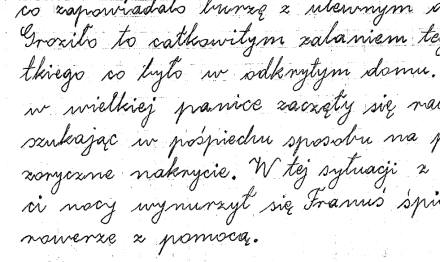 co zapowiadało burzę z ulewnym
Groziło to całkowitym zalaniem
tkiego co było w odkrytym domu.
w wielkiej panice zaczęły się
szukając w pośpiechu sposobu na
zoryczne nakrycie. W tej sytuacji z
ci nocy wynurzył się Franuś
rowerze z pomocą.